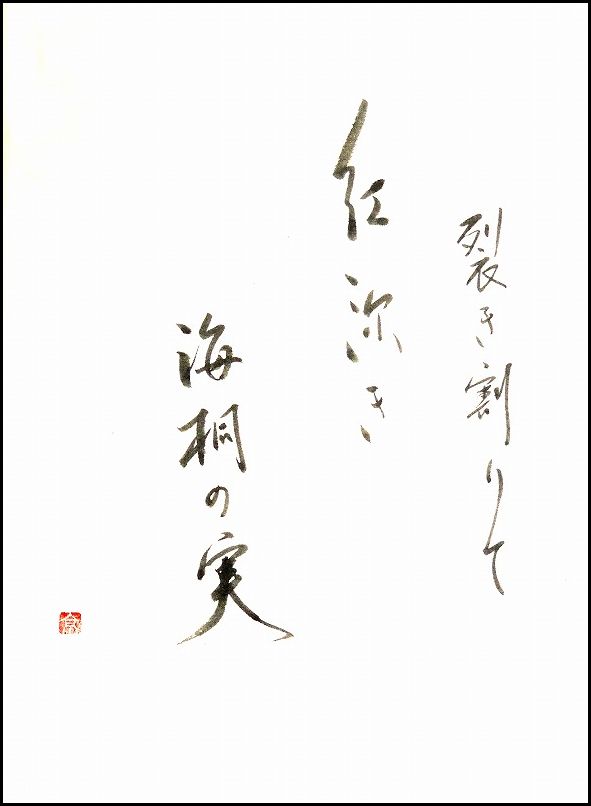 裂き割りて
紅深き
海桐の実